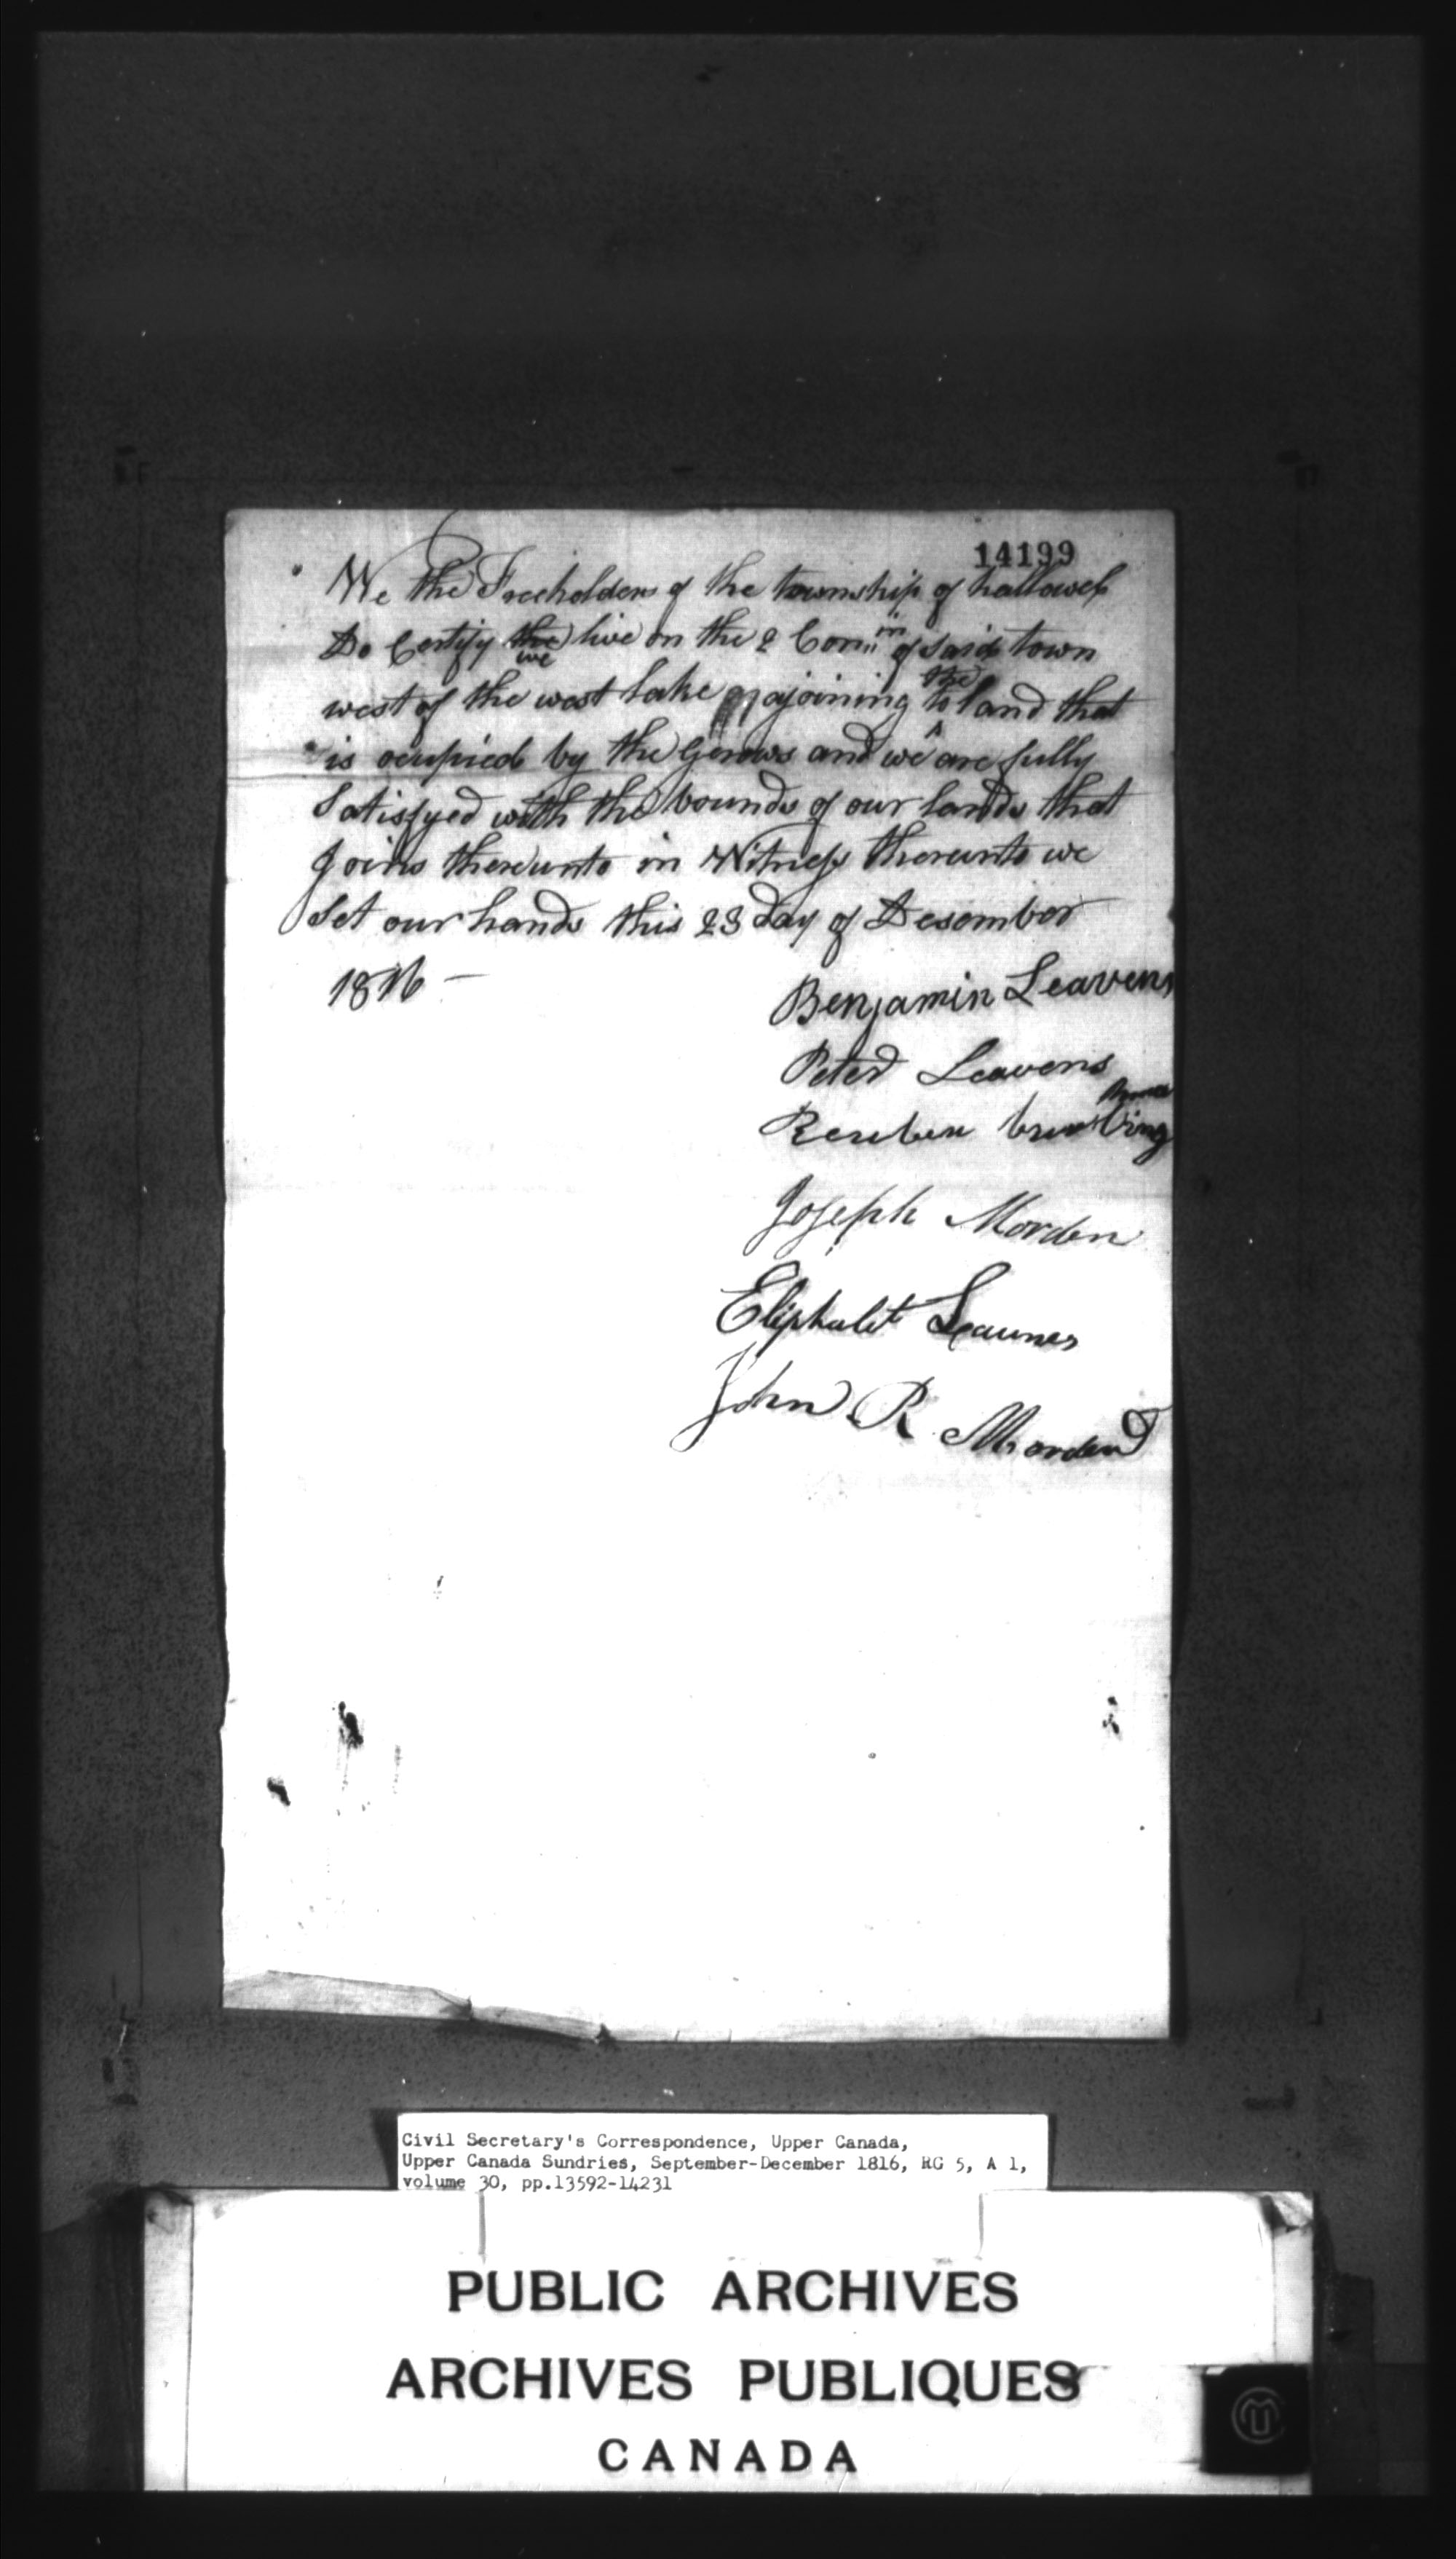 14199
We the Freeholders of the township of hallowel
Do Certify the we live on the 2 Con:n in of said town
west of the west lake ajoining to the land that
is ocupied by the Gerows and we are fully
Satisfyed with the bounds of our lands that
Joins thereunto in Witness thereunto we
Set our hands this 23 day of Desember
1816 —
Benjamin Leavens
Peter Leavens
Reuben
Joseph Morden
Eliphalet Leaunes
John R Morden
Civil Secretary's Correspondence, Upper Canada,
Upper Canada Sundries, September-December 1816, RG 5, A 1,
volume 30, pp.13592-14231
PUBLIC ARCHIVES
ARCHIVES PUBLIQUES
CANADA